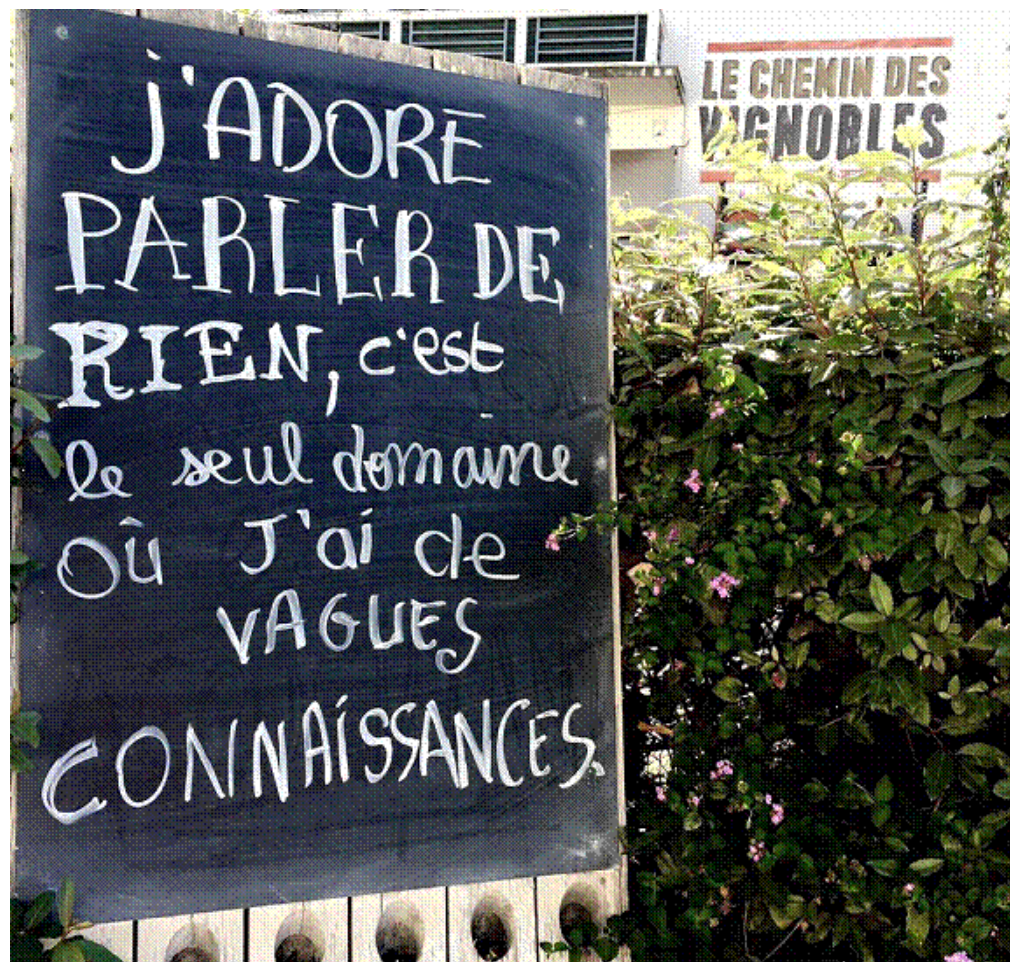 J'ADORE
PARLER DE
RIEN, c'est
le seul domaine
Où J'ai de
VAGUES
CONNAISSANCES.
LE CHEMIN DES
VIGNOBLES